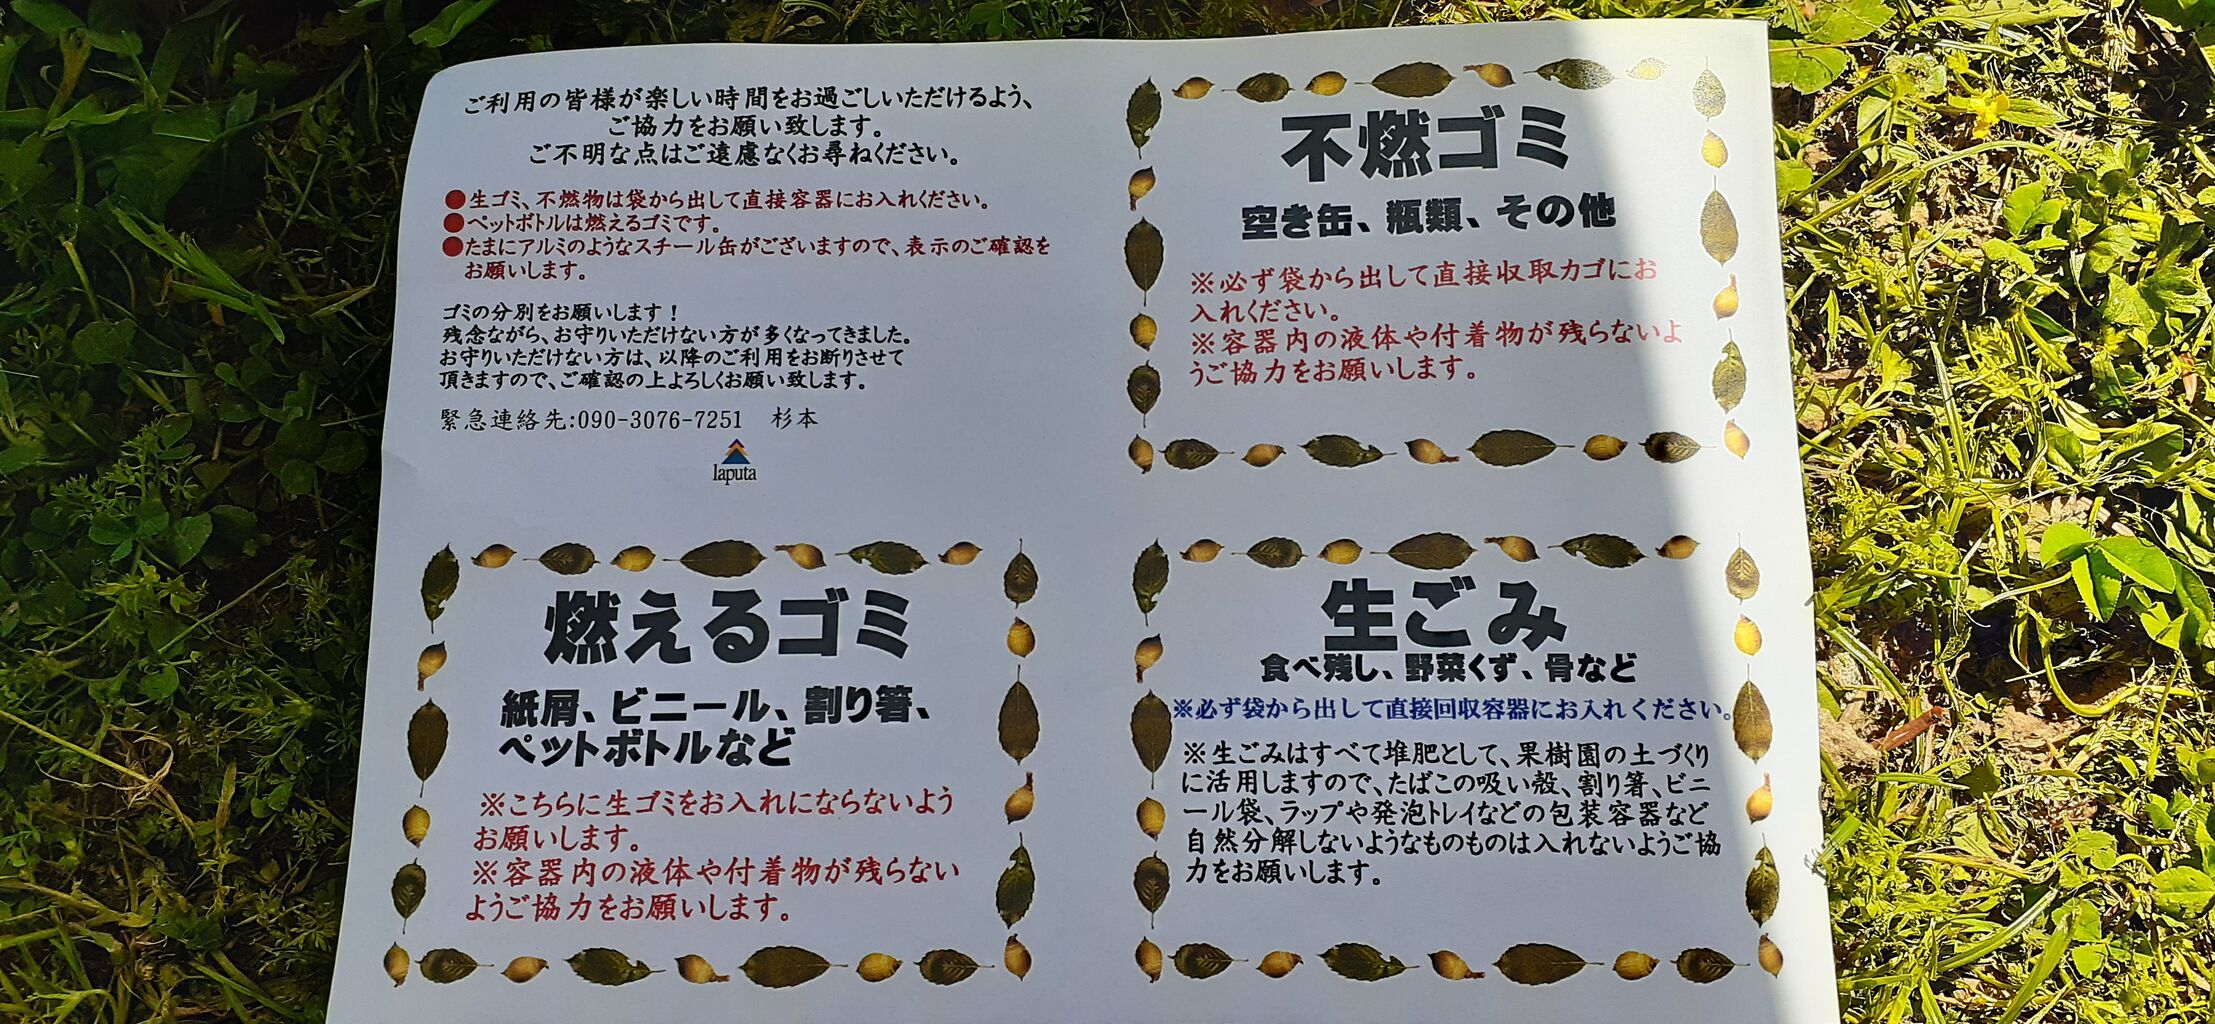 ご利用の皆様が楽しい時間をお過ごしいただけるよう、
ご協力をお願い致します。
ご不明な点はご遠慮なくお尋ねください。
●生ゴミ、不燃物は袋から出して直接容器にお入れください。
●ペットボトルは燃えるゴミです。
●たまにアルミのようなスチール缶がございますので、表示のご確認を
お願いします。
ゴミの分別をお願いします！
残念ながら、お守りいただけない方が多くなってきました。
お守りいただけない方は、以降のご利用をお断りさせて
頂きますので、ご確認の上よろしくお願い致します。
緊急連絡先:090-3076-7251　杉本
laputa
不燃ゴミ
空き缶、瓶類、その他
※必ず袋から出して直接収取カゴにお
入れください。
※容器内の液体や付着物が残らないよ
うご協力をお願いします。
燃えるゴミ
紙屑、ビニール、割り箸、
ペットボトルなど
※こちらに生ゴミをお入れにならないよう
お願いします。
※容器内の液体や付着物が残らない
ようご協力をお願いします。
生ごみ
食べ残し、野菜くず、骨など
※必ず袋から出して直接回収容器にお入れください。
※生ごみはすべて堆肥として、果樹園の土づくり
に活用しますので、たばこの吸い殻、割り箸、ビニ
ール袋、ラップや発泡トレイなどの包装容器など
自然分解しないようなものものは入れないようご協
力をお願いします。